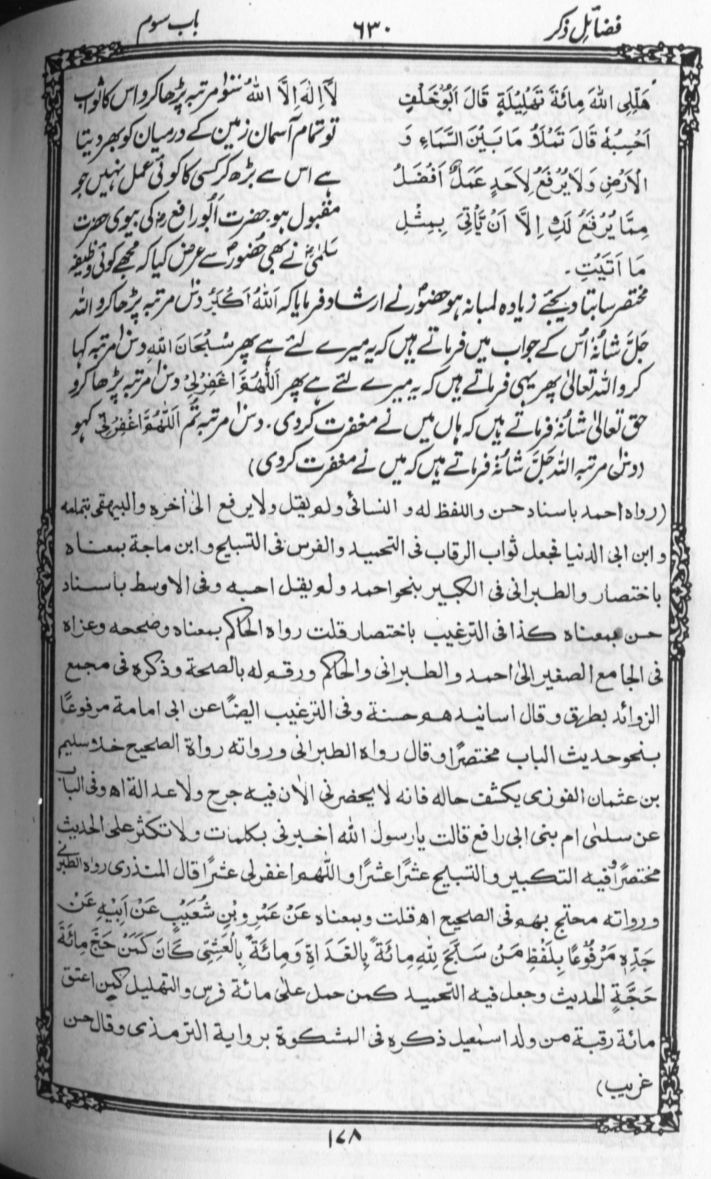 باب سوم ۶۳۰ فضائل ذکر
هَلِّلِی اللهَ مِائَةَ تَهْلِیْلَةٍ قَالَ اَبُوْخَلْفٍ
اَحْسِبُهٗ قَالَ تَمْلَأُ مَا بَیْنَ السَّمَاءِ وَ
الْاَرْضِ وَلَا یُرْفَعُ لِاَحَدٍ عَمَلٌ اَفْضَلُ
مِمَّا یُرْفَعُ لَكِ اِلَّا اَنْ یَّأْتِیَ بِمِثْلِ
مَا اَتَیْتِ۔
لَآ اِلٰهَ اِلَّا اللهُ سَو مرتبہ پڑھا کرو اس کا ثواب
تو تمام آسمان زمین کے درمیان کو بھر دیتا
ہے اس سے بڑھ کر کسی کا کوئی عمل نہیں جو
مقبول ہو حضرت ابُو رافع رضؓ کی بیوی حضرت
سلمٰی رضؓ نے بھی حضورؐ سے عرض کیا کہ مجھے کوئی وظیفہ
مختصر سا بتا دیجئے زیادہ لمبا نہ ہو حضورؐ نے ارشاد فرمایا کہ اَللهُ اَكْبَرُ دس مرتبہ پڑھا کرو اللہ
جَلَّ شانُہٗ اُس کے جواب میں فرماتے ہیں کہ یہ میرے لئے ہے پھر سُبْحَانَ اللهِ دس مرتبہ کہا
کرو اللہ تعالیٰ پھر یہی فرماتے ہیں کہ یہ میرے لئے ہے پھر اَللّٰهُمَّ اغْفِرْلِیْ دس مرتبہ پڑھا کرو
حق تعالیٰ شانُہٗ فرماتے ہیں کہ ہاں میں نے مغفرت کر دی۔ دس مرتبہ تم اَللّٰهُمَّ اغْفِرْلِیْ کہو
دس مرتبہ اللہ جَلَّ شانُہٗ فرماتے ہیں کہ میں نے مغفرت کر دی)
(رواه احمد باسناد حسن واللفظ له و النسائی ولم یقل ولا یرفع الی اٰخره والبیهقی بتمامه
وابن ابی الدنیا فجعل ثواب الرقاب فی التحمید والفرس فی التسبیح و ابن ماجة بمعناه
باختصار والطبرانی فی الکبیر بنحو احمد ولم یقل احبه وفی الاوسط باسناد
حسن بمعناه کذا فی الترغیب باختصار قلت رواه الحاکم بمعناه وصححه وعزاه
فی الجامع الصغیر الی احمد والطبرانی والحاکم ورقم له بالصحة وذکره فی مجمع
الزوائد بطرق وقال اسانیدهم حسنة وفی الترغیب ایضًا عن ابی امامة مرفوعًا
بنحو حدیث الباب مختصرًا وقال رواه الطبرانی ورواته رواة الصحیح خلا سلیم
بن عثمان الفوزی یکشف حاله فانه لا یحضرنی الاٰن فیه جرح ولا عدالة اھ وفی الباب
عن سلمٰی ام بنی ابی رافع قالت یا رسول الله اخبرنی بکلمات ولا تکثر علی الحدیث
مختصرًا فیه التکبیر والتسبیح عشرًا عشرًا واللهم اغفرلی عشرًا قال المنذری رواه الطبرانی
ورواته محتج بهم فی الصحیح اھ قلت وبمعناه عَنْ عَمْرِو بْنِ شُعَیْبٍ عَنْ اَبِیْهِ عَنْ
جَدِّهٖ مَرْفُوْعًا بِلَفْظِ مَنْ سَبَّحَ لِلّٰهِ مِائَةً بِالْغَدَاةِ وَمِائَةً بِالْعَشِیِّ كَانَ كَمَنْ حَجَّ مِائَةَ
حَجَّةٍ الحدیث وجعل فیه التحمید کمن حمل علی مائة فرس والتهلیل کمن اعتق
مائة رقبة من ولد اسمٰعیل ذکره فی المشکوة بروایة الترمذی وقال حسن
غریب)
۱۷۸